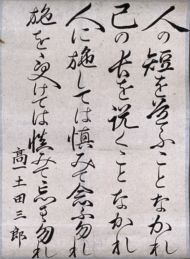 人の短を言ふことなかれ
己の長を説くことなかれ
人に施しては慎みて念ふ勿れ
施を受けては慎みて忘る勿れ
高一 土田三郎